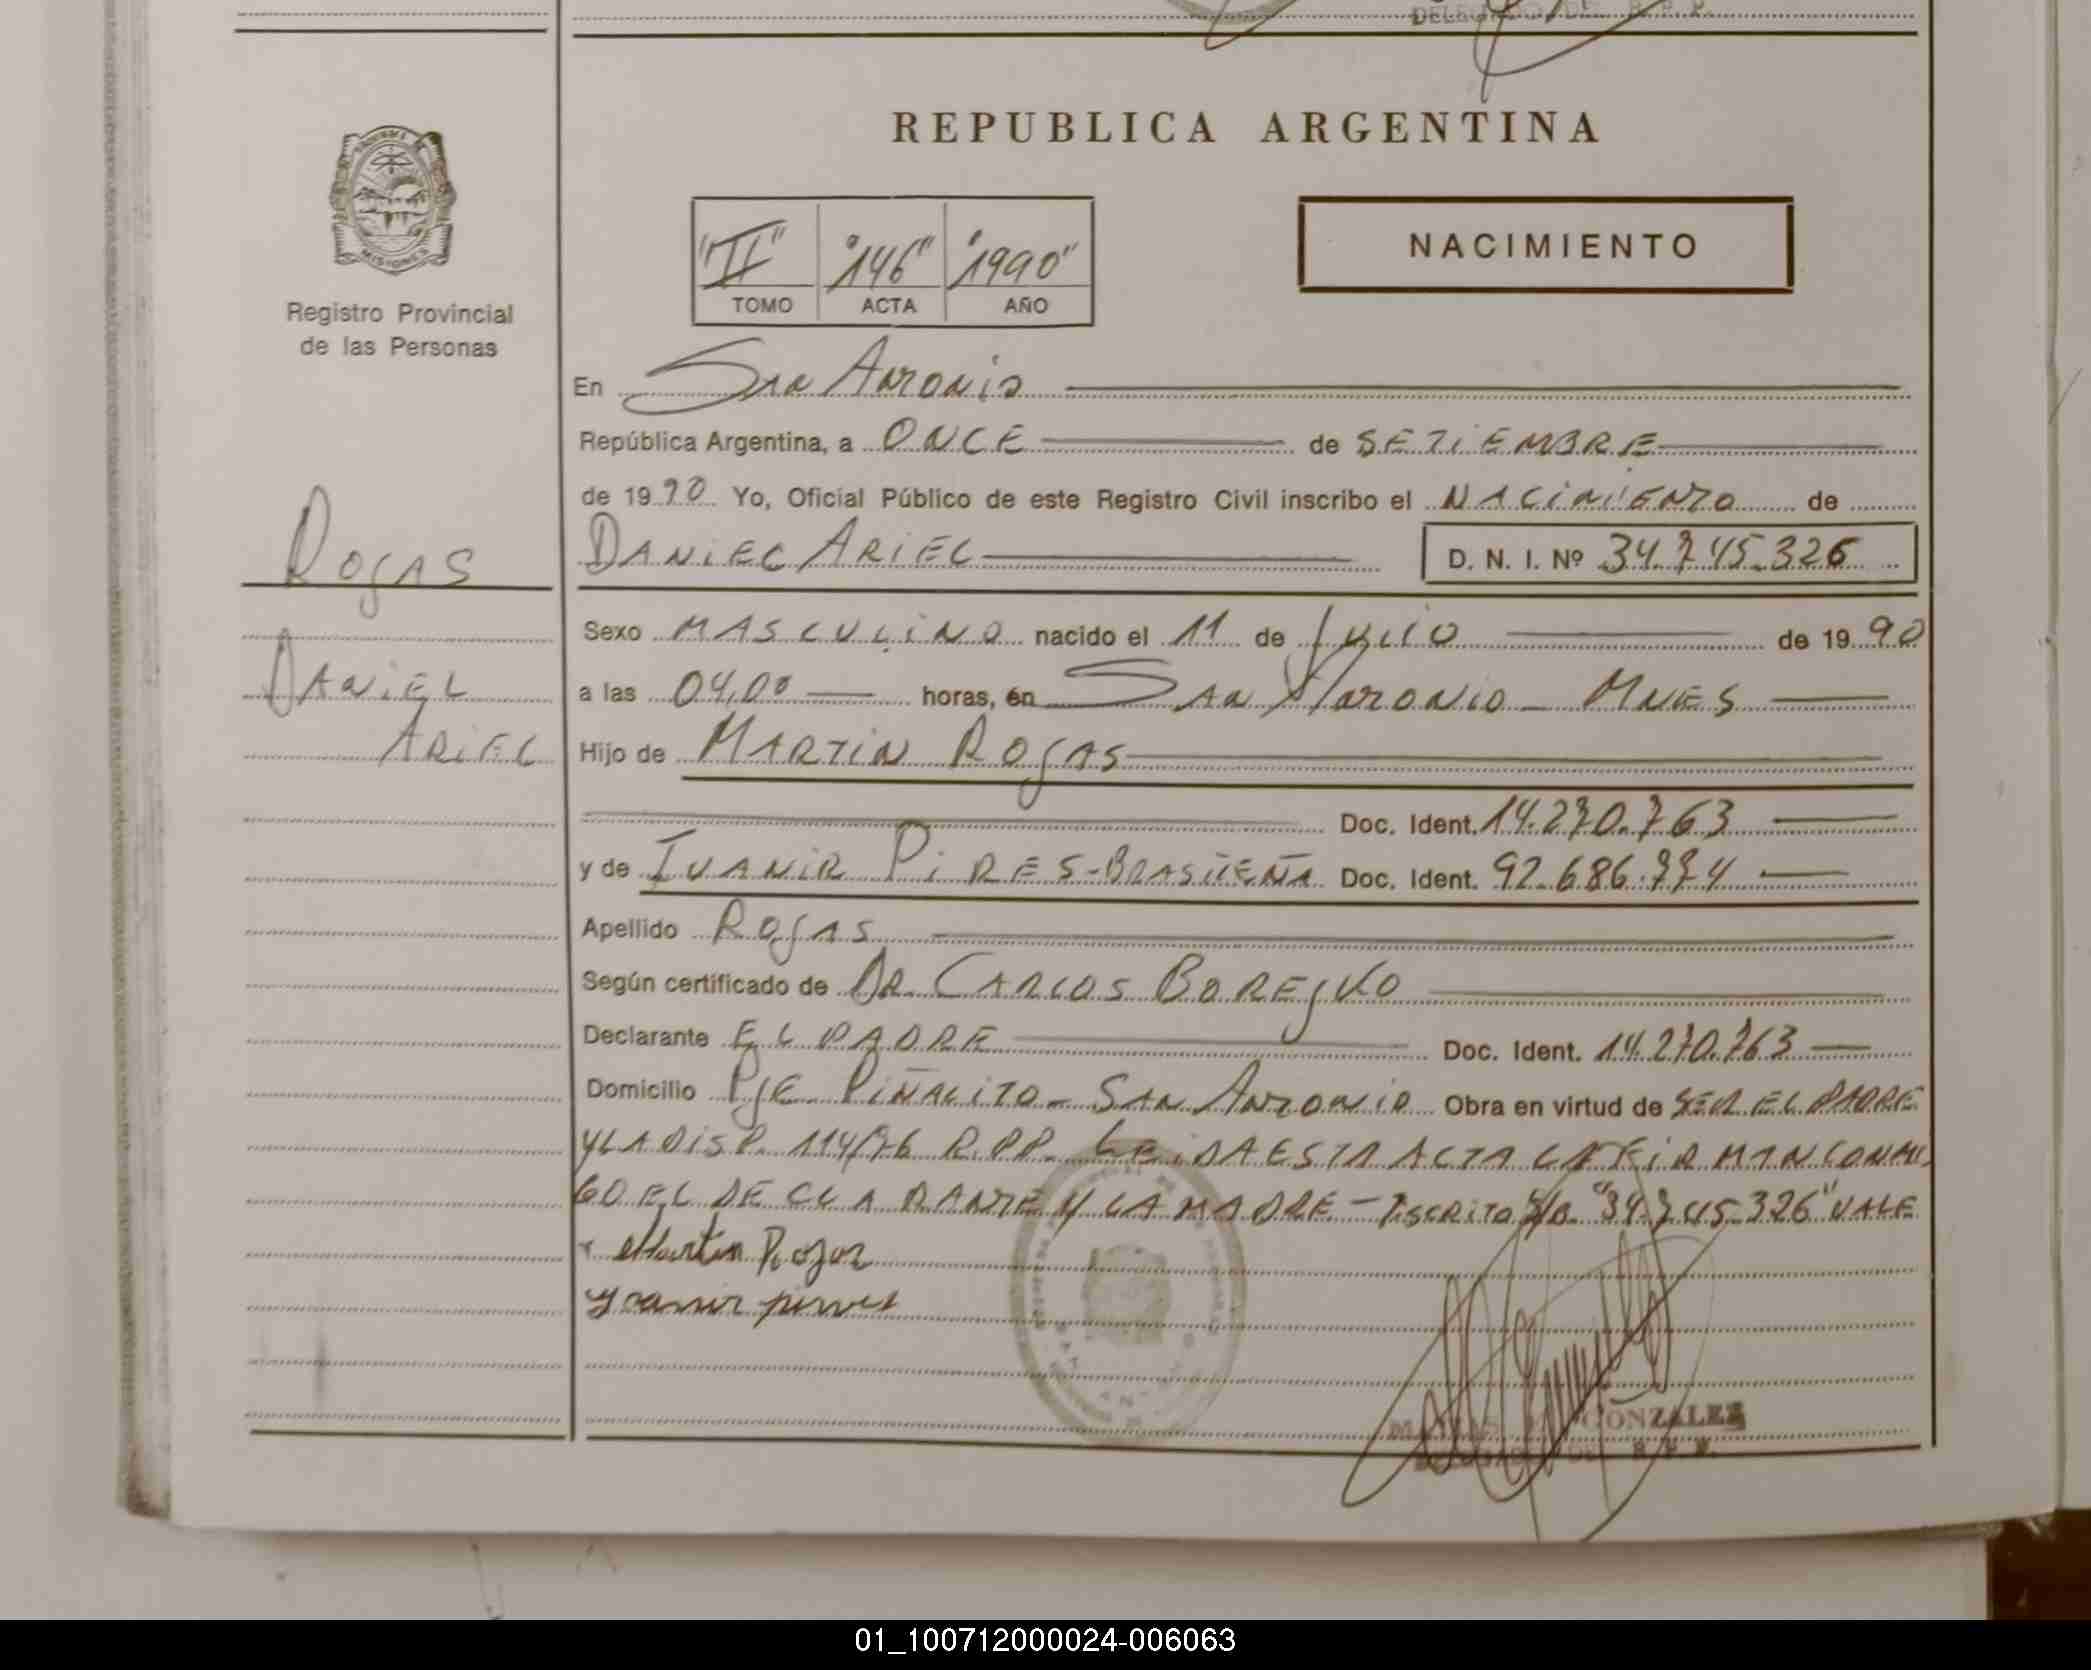 DELEGADO DEL R. P. P.
REPUBLICA ARGENTINA
"II" "146" "1990"
TOMO ACTA AÑO
NACIMIENTO
MISIONES
Registro Provincial
de las Personas
En San Antonio
República Argentina, a ONCE de SETIEMBRE
de 1990 Yo, Oficial Público de este Registro Civil inscribo el NACIMIENTO de
ROJAS
DANIEL ARIEL D. N. I. Nº 34.745.326
Sexo MASCULINO nacido el 11 de Julio de 1990
DANIEL
a las 04,00 horas, en SAN ANTONIO - MNES
ARIEL
Hijo de MARTIN ROJAS
Doc. Ident. 14.270.763
y de IVANIR PIRES-BRASILEÑA Doc. Ident. 92.686.774
Apellido ROJAS
Según certificado de DR. CARLOS BOREJKO
Declarante EL PADRE Doc. Ident. 14.270.763
Domicilio PJE PIÑALITO - SAN ANTONIO Obra en virtud de SER EL PADRE
Y LA DISP. 114/76 R.PP. LEIDA ESTA ACTA LA FIRMAN CONMI
GO EL DECLARANTE Y LA MADRE - Escrito S/B "34.745.326" VALE
Martin Rojas
Yvanir pires
GONZALEZ
R. P. P.
01_100712000024-006063